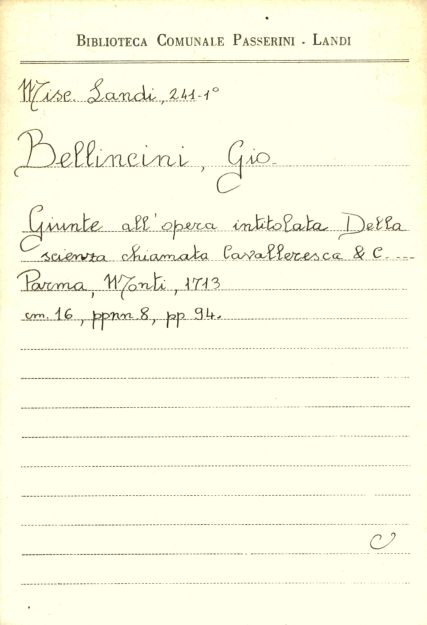 BIBLIOTECA COMUNALE PASSERINI - LANDI
Misc. Landi, 241-1°
Bellincini, Gio.
Giunte all'opera intitolata Della
scienza chiamata Cavalleresca & C. ---
Parma, Monti, 1713
cm. 16, ppnn. 8, pp 94.